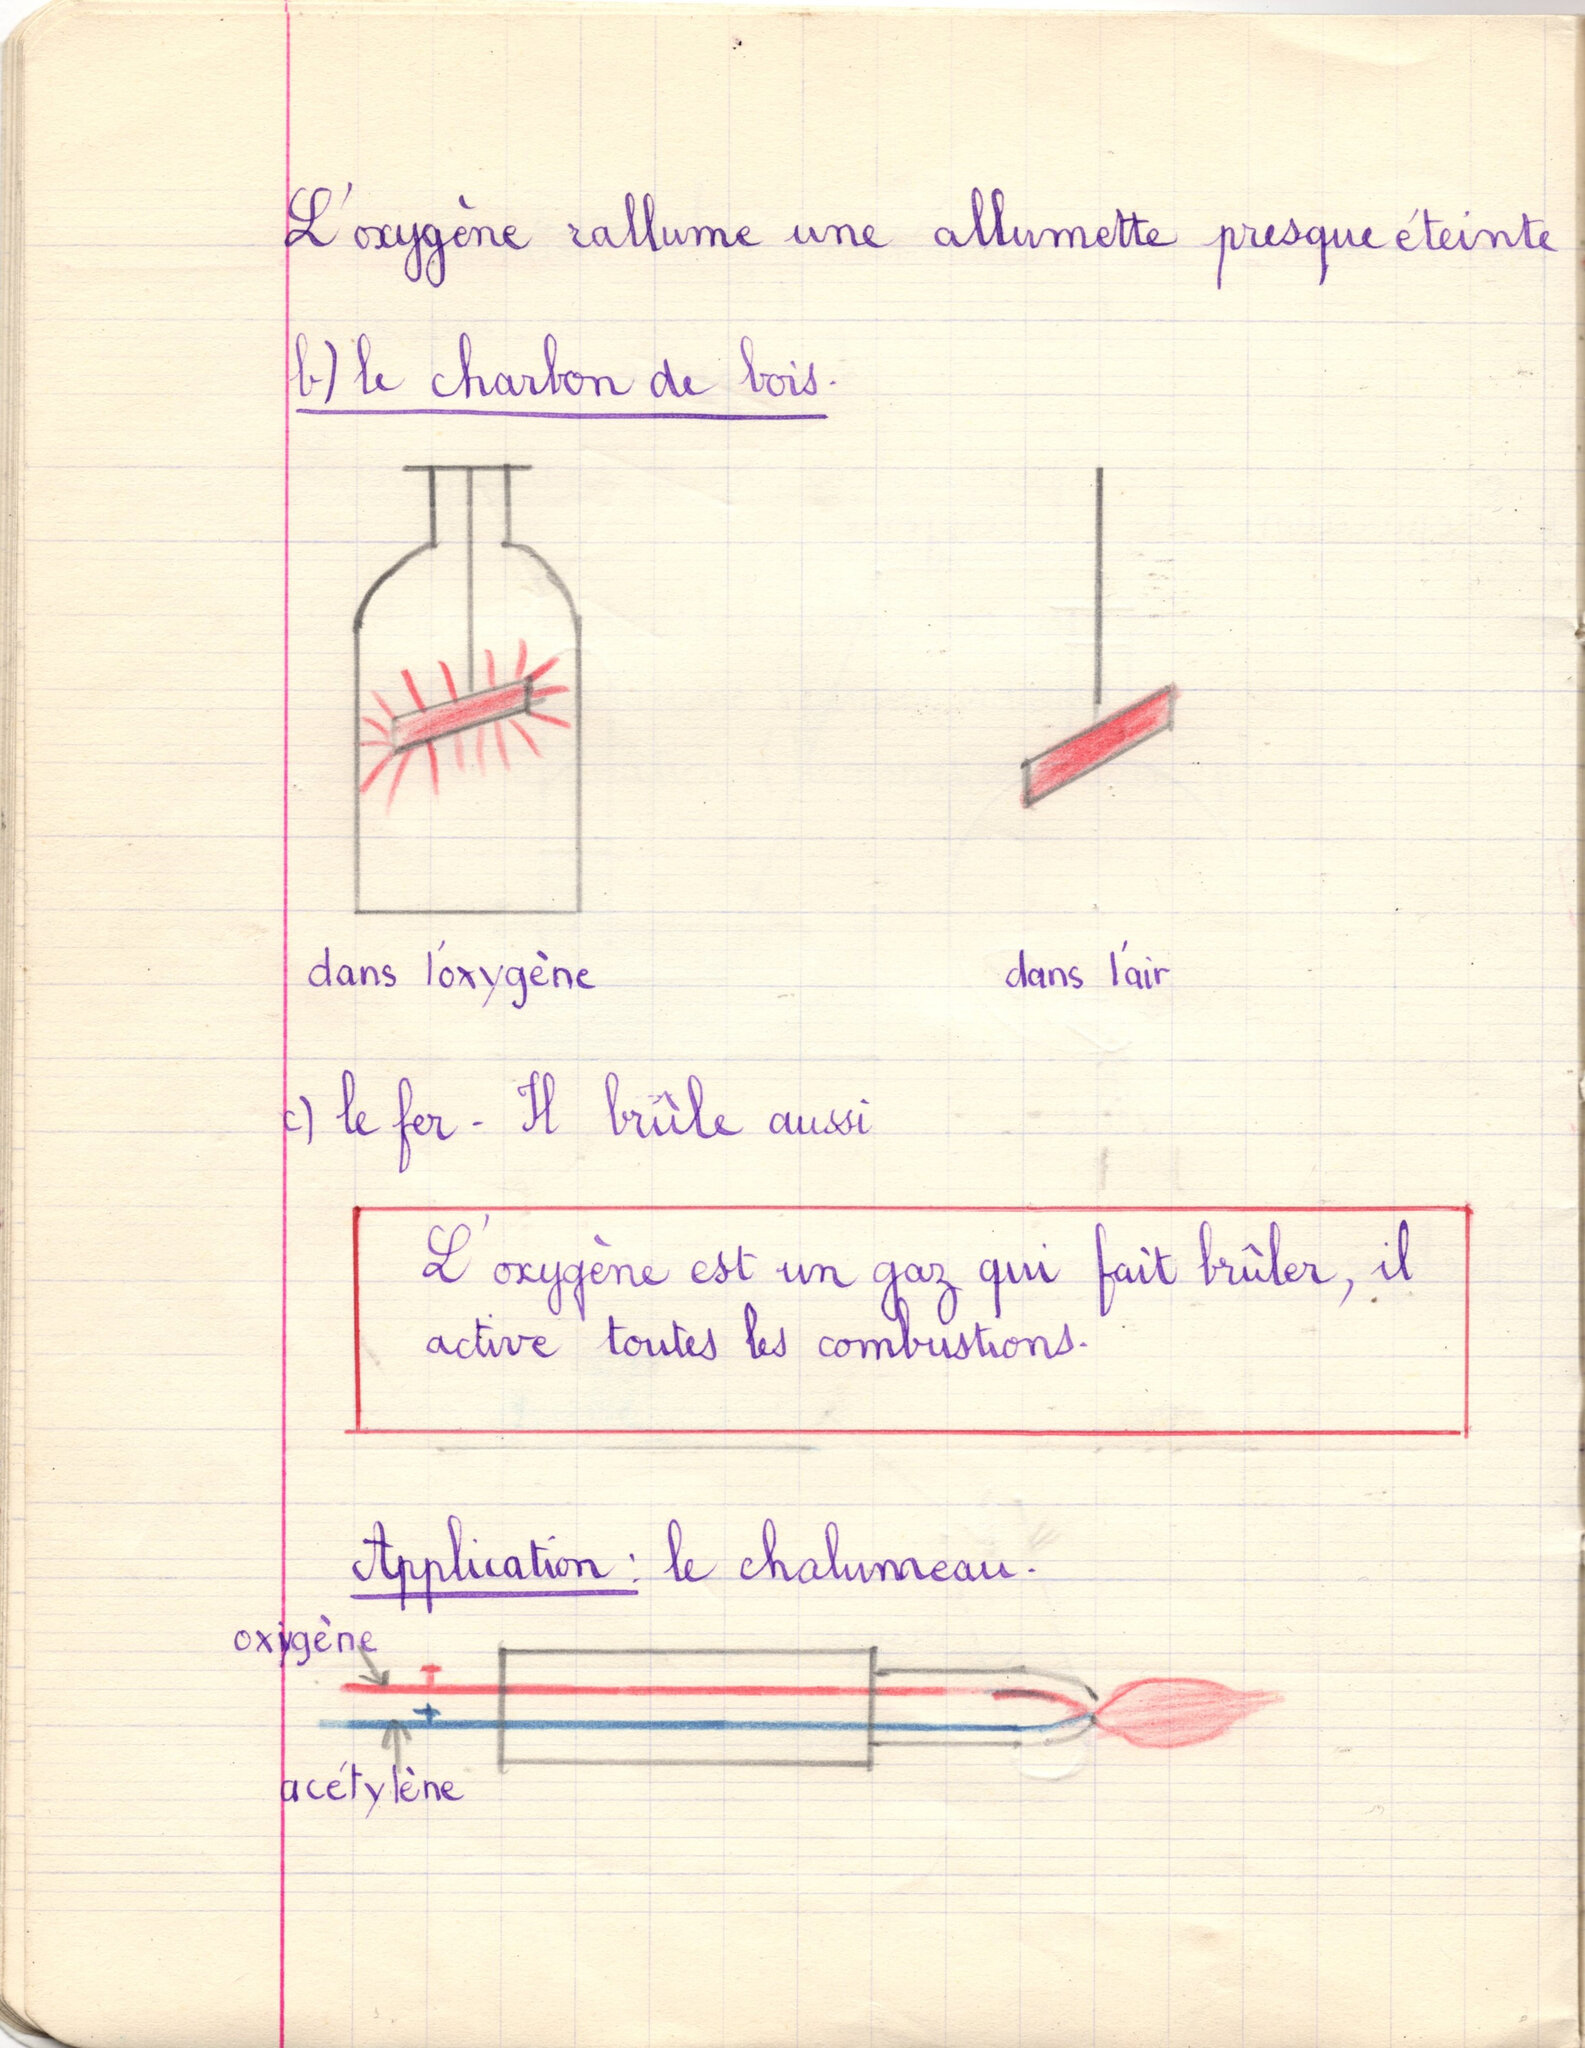 L'oxygène rallume une allumette presque éteinte
b) le charbon de bois.
dans l'oxygène
dans l'air
c) le fer - Il brûle aussi
L'oxygène est un gaz qui fait brûler, il
active toutes les combustions.
Application : le chalumeau.
oxygène
acétylène